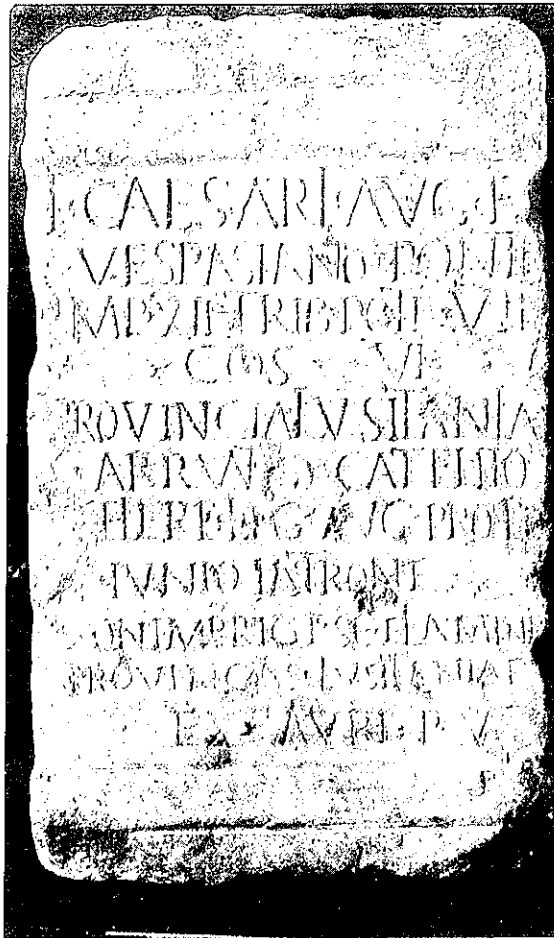 T CAESARI AVG F
VESPASIANO PONTI
IMP XII TRIB POTE VII
COS VI
PROVINCIA LVSITANIA
ARRVNTIO CATELLIO
LEG AVG PRO P
IVNIO LATRONE
ONIMBRIGESE FLAMINE
PROVINCIAE LVSITANIAE
EX AVRI P V